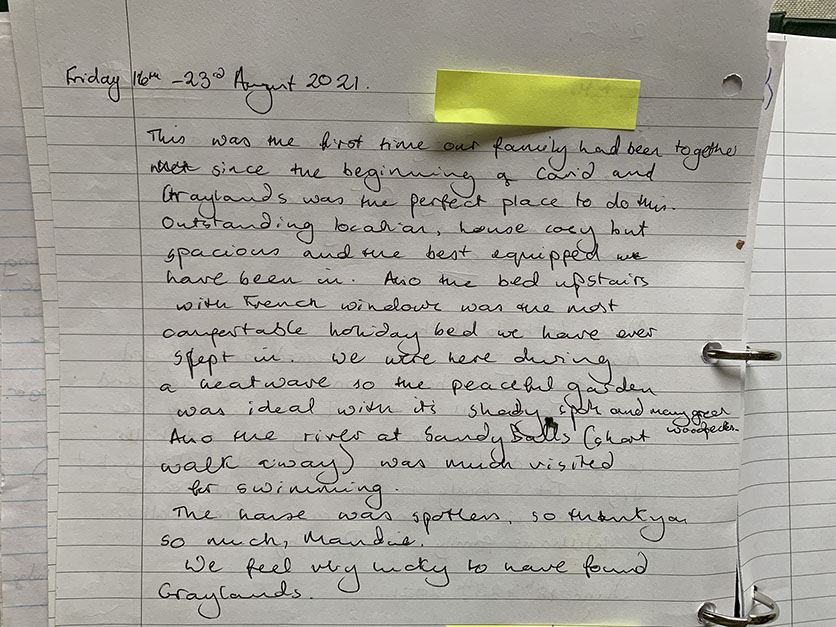 Friday 16th - 23rd August 2021.
This was the first time our family had been together
since the beginning of Covid and
Graylands was the perfect place to do this.
Outstanding location, house cosy but
spacious and the best equipped we
have been in. Also the bed upstairs
with French windows was the most
comfortable holiday bed we have ever
slept in. We were here during
a heatwave so the peaceful garden
was ideal with its shady spots and many green
woodpeckers.
Also the river at Sandy Balls (short
walk away) was much visited
for swimming.
The house was spotless, so thankyou
so much, Mandie.
We feel very lucky to have found
Graylands.